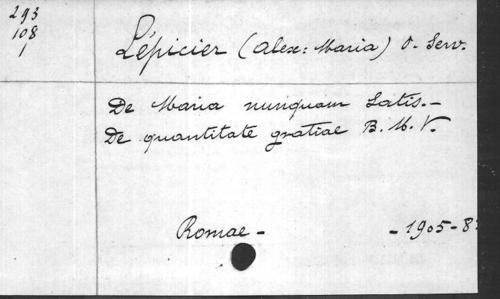 293
108
1
Lépicier (Alex: Maria) O. Serv.
De Maria nunquam Satis.-
De quantitate gratiae B. M. V.
Romae - - 1905-8º